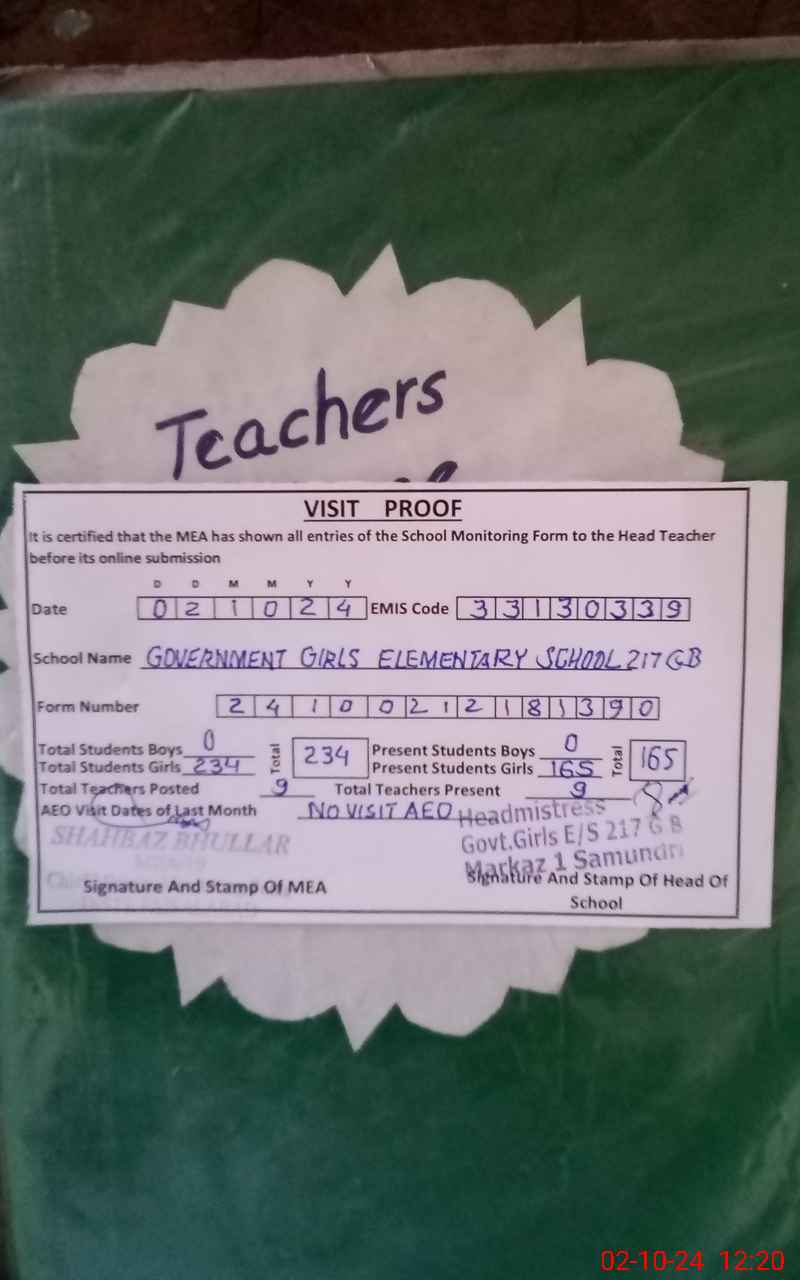 Teachers
VISIT PROOF
It is certified that the MEA has shown all entries of the School Monitoring Form to the Head Teacher
before its online submission
D D M M Y Y
Date 0 2 1 0 2 4 EMIS Code 3 3 1 3 0 3 3 9
School Name GOVERNMENT GIRLS ELEMENTARY SCHOOL 217 GB
Form Number 2 4 1 0 0 2 1 2 1 8 1 3 9 0
Total Students Boys 0 Total 234 Present Students Boys 0 Total 165
Total Students Girls 234 Present Students Girls 165
Total Teachers Posted 9 Total Teachers Present 9
AEO Visit Dates of Last Month NO VISIT AEO
Headmistress
SHAHBAZ BHULLAR Govt.Girls E/S 217 G B
Markaz 1 Samundri
Signature And Stamp Of MEA Signature And Stamp Of Head Of
School
02-10-24 12:20